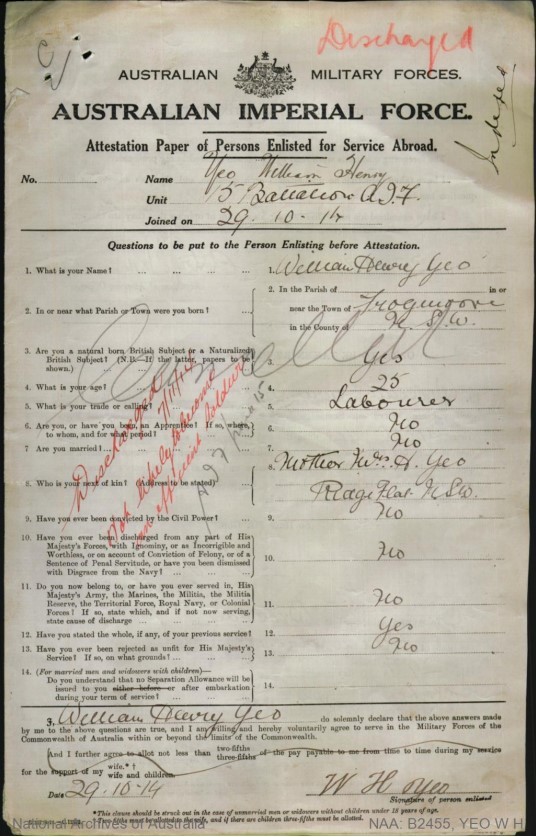 Discharged
Indexed
AUSTRALIAN MILITARY FORCES.
AUSTRALIAN IMPERIAL FORCE.
Attestation Paper of Persons Enlisted for Service Abroad.
No. Name Yeo William Henry
Unit 15 Battalion A.I.F.
Joined on 29.10.14
Questions to be put to the Person Enlisting before Attestation.
1. What is your Name? ... ... ... 1. William Henry Yeo
2. In or near what Parish or Town were you born? ... 2. In the Parish of in or
near the Town of
in the County of N.S.W.
3. Are you a natural born British Subject or a Naturalized
British Subject? (N.B.—If the latter, papers to be
shown.) 3. Yes
4. What is your age? ... 4. 25
5. What is your trade or calling? 5. Labourer
6. Are you, or have you been, an Apprentice? If so, where,
to whom, and for what period? 6. No
7. Are you married? ... 7. No
8. Who is your next of kin? (Address to be stated) 8. Mother Mrs. A. Yeo
Ridge Flat N.S.W.
Cancelled
Discharged
7/11/14
Not likely to become
an efficient soldier
9. Have you ever been convicted by the Civil Power? 9. No
10. Have you ever been discharged from any part of His
Majesty's Forces, with Ignominy, or as Incorrigible and
Worthless, or on account of Conviction of Felony, or of a
Sentence of Penal Servitude, or have you been dismissed
with Disgrace from the Navy? ... 10. No
11. Do you now belong to, or have you ever served in, His
Majesty's Army, the Marines, the Militia, the Militia
Reserve, the Territorial Force, Royal Navy, or Colonial
Forces? If so, state which, and if not now serving,
state cause of discharge ... 11. No
12. Have you stated the whole, if any, of your previous service? 12. Yes
13. Have you ever been rejected as unfit for His Majesty's
Service? If so, on what grounds? ... 13. No
14. (For married men and widowers with children)—
Do you understand that no Separation Allowance will be
issued to you either before or after embarkation
during your term of service? ... 14.
I, William Henry Yeo do solemnly declare that the above answers made
by me to the above questions are true, and I am willing and hereby voluntarily agree to serve in the Military Forces of the
Commonwealth of Australia within or beyond the limits of the Commonwealth.
And I further agree to allot not less than two-fifths three-fifths of the pay payable to me from time to time during my service
for the support of my wife.*† wife and children.
Date 29.10.14 W H Yeo
Signature of person enlisted
*This clause should be struck out in the case of unmarried men or widowers without children under 18 years of age.
†Two-fifths must be allotted to the wife, and if there are children three-fifths must be allotted.
National Archives of Australia NAA: B2455, YEO W H